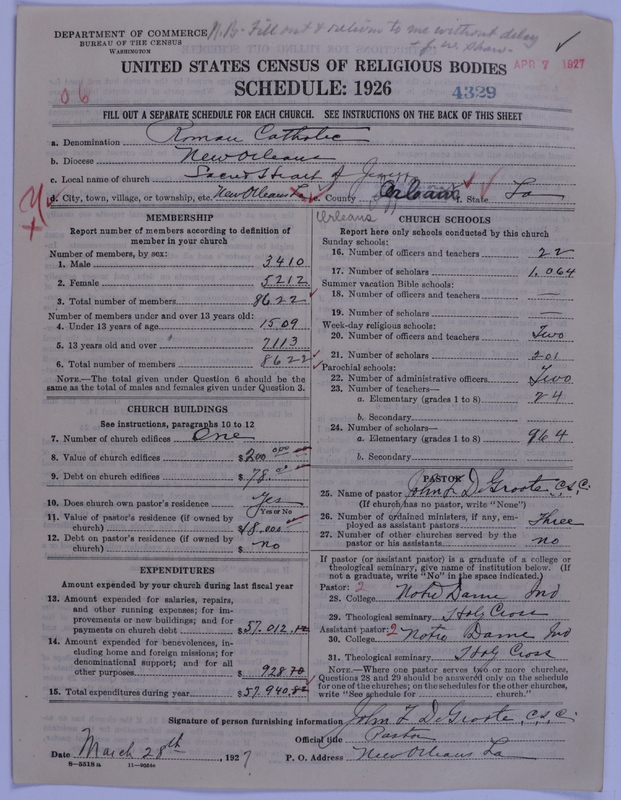 DEPARTMENT OF COMMERCE
BUREAU OF THE CENSUS
WASHINGTON
N.B. Fill out & return to me without delay
J. W. Shaw.
UNITED STATES CENSUS OF RELIGIOUS BODIES
APR 7 1927
SCHEDULE: 1926
06
4329
FILL OUT A SEPARATE SCHEDULE FOR EACH CHURCH. SEE INSTRUCTIONS ON THE BACK OF THIS SHEET
a. Denomination Roman Catholic
b. Diocese New Orleans
c. Local name of church Sacred Heart of Jesus
d. City, town, village, or township, etc. New Orleans La e. County Orleans f. State La
Orleans
MEMBERSHIP
Report number of members according to definition of member in your church
Number of members, by sex:
1. Male 3410
2. Female 5212
3. Total number of members 8622
Number of members under and over 13 years old:
4. Under 13 years of age 1509
5. 13 years old and over 7113
6. Total number of members 8622
NOTE.—The total given under Question 6 should be the
same as the total of males and females given under Question 3.
CHURCH BUILDINGS
See instructions, paragraphs 10 to 12
7. Number of church edifices One
8. Value of church edifices $200,000.00
9. Debt on church edifices $78.00
10. Does church own pastor's residence Yes
Yes or No
11. Value of pastor's residence (if owned by
church) $8.000
12. Debt on pastor's residence (if owned by
church) $ no
EXPENDITURES
Amount expended by your church during last fiscal year
13. Amount expended for salaries, repairs,
and other running expenses; for im-
provements or new buildings; and for
payments on church debt $57.012.12
14. Amount expended for benevolences, in-
cluding home and foreign missions; for
denominational support; and for all
other purposes $928.70
15. Total expenditures during year $57.940.82
CHURCH SCHOOLS
Report here only schools conducted by this church
Sunday schools:
16. Number of officers and teachers 22
17. Number of scholars 1.064
Summer vacation Bible schools:
18. Number of officers and teachers —
19. Number of scholars —
Week-day religious schools:
20. Number of officers and teachers Two
21. Number of scholars 201
Parochial schools:
22. Number of administrative officers Two
23. Number of teachers—
a. Elementary (grades 1 to 8) 24
b. Secondary
24. Number of scholars—
a. Elementary (grades 1 to 8) 964
b. Secondary
PASTOR
25. Name of pastor John F. DeGroote, C.S.C.
(If church has no pastor, write "None")
26. Number of ordained ministers, if any, em-
ployed as assistant pastors Three
27. Number of other churches served by the
pastor or his assistants no
If pastor (or assistant pastor) is a graduate of a college or
theological seminary, give name of institution below. (If
not a graduate, write "No" in the space indicated.)
Pastor: 2
28. College Notre Dame Ind
29. Theological seminary Holy Cross
Assistant pastor: 2
30. College Notre Dame Ind
31. Theological seminary Holy Cross
NOTE.—Where one pastor serves two or more churches,
Questions 28 and 29 should be answered only on the schedule
for one of the churches; on the schedules for the other churches,
write "See schedule for ______ church."
Signature of person furnishing information John F. DeGroote, C.S.C.
Official title Pastor
Date March 28th, 1927 P. O. Address New Orleans La
8-5518a 11-9564